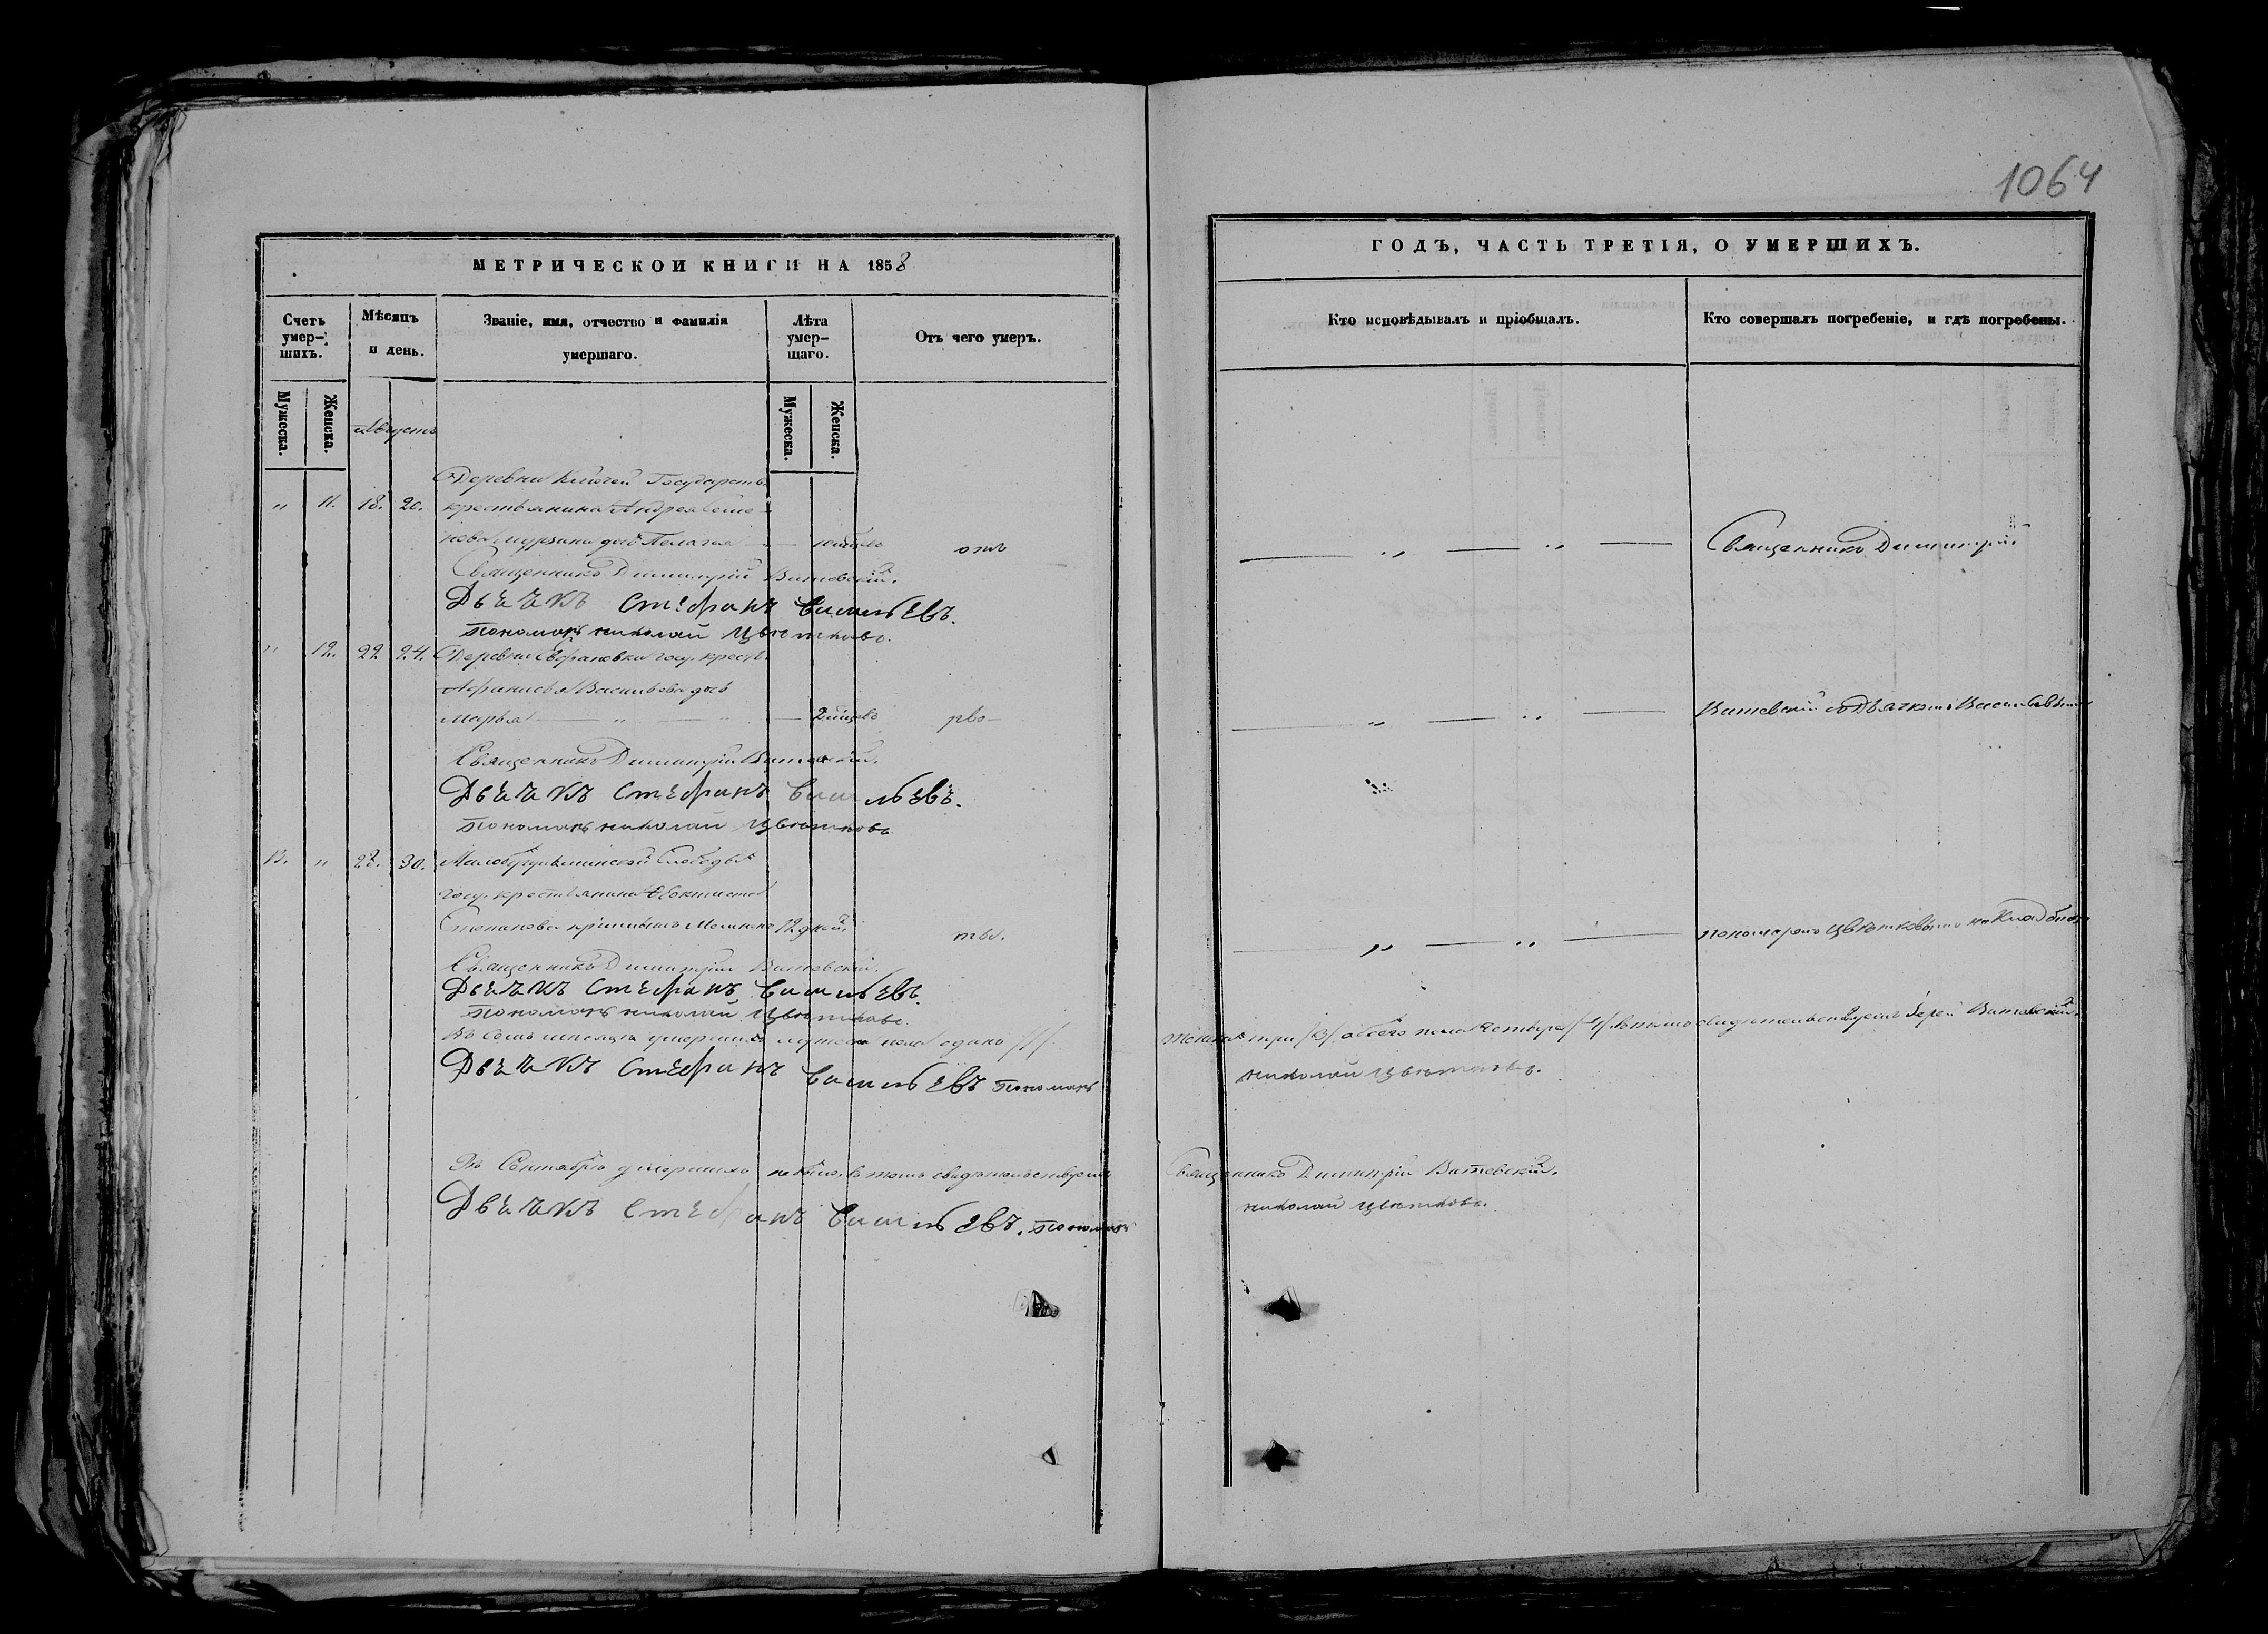 1064
МЕТРИЧЕСКОЙ КНИГИ НА 1858
Счетъ умер-шихъ.
Мѣсяцъ и день.
Званіе, имя, отчество и фамилія умершаго.
Лѣта умер-шаго.
Отъ чего умеръ.
Мужеска.
Женска.
Августъ
Мужеска.
Женска.
Деревни Ключей Государств.
" 11. 18. 20. крестьянина Андрея Семе-
нова дочь Пелагея отъ
Священникъ Димитрій Витевскій.
Дьячекъ Стефанъ Васильевъ.
пономарь николай Цвѣтковъ.
" 12. 22 24. Деревни госу. крестья.
Афанасья Васильева дочь
Марья — " — " — рво-
Священникъ Димитрій Витевскій.
Дьячекъ Стефанъ Васильевъ.
пономарь николай Цвѣтковъ
13. " 28. 30. Слободы
госу. крестьянина
Степанова 12 дней. ты.
Священникъ Димитрій Витевскій.
Дьячекъ Стефанъ Васильевъ.
пономарь николай Цвѣтковъ.
Въ семъ мѣсяцѣ умершихъ мужеска пола одинъ /1/
Дьячекъ Стефанъ Васильевъ пономарь
Въ Сентябрѣ умершихъ небыло, въ томъ свидѣтельствуемъ
Дьячекъ Стефанъ Васильевъ. пономарь
ГОДЪ, ЧАСТЬ ТРЕТІЯ, О УМЕРШИХЪ.
Кто исповѣдывалъ и пріобщалъ.
Кто совершалъ погребеніе, и гдѣ погребены.
— " — " — Священникъ Димитрій
— " — " — Витевскій съ Дьячкомъ Васильевымъ
— " — " — пономаремъ Цвѣтковымъ на Кладбищѣ
женска три /3/. обоего пола четыре /4/. въ томъ свидѣтельствуемъ Іерей Витевскій.
николай Цвѣтковъ.
Священникъ Димитрій Витевскій.
николай Цвѣтковъ.